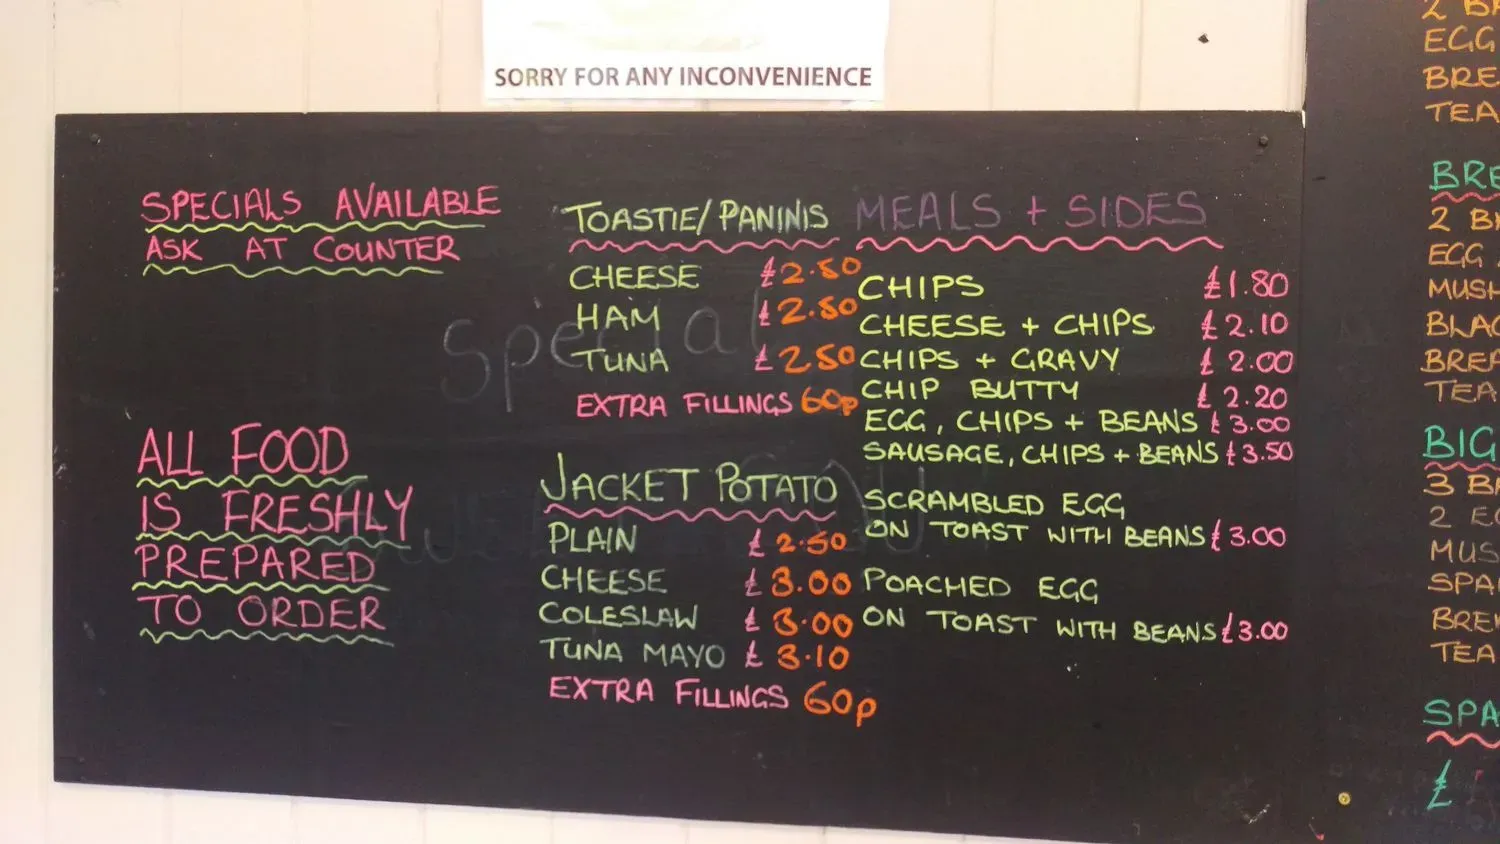 SORRY FOR ANY INCONVENIENCE
SPECIALS AVAILABLE
ASK AT COUNTER
ALL FOOD
IS FRESHLY
PREPARED
TO ORDER
TOASTIE/PANINIS
CHEESE £2.50
HAM £2.50
TUNA £2.50
EXTRA FILLINGS 60p
JACKET POTATO
PLAIN £2.50
CHEESE £3.00
COLESLAW £3.00
TUNA MAYO £3.10
EXTRA FILLINGS 60p
MEALS + SIDES
CHIPS £1.80
CHEESE + CHIPS £2.10
CHIPS + GRAVY £2.00
CHIP BUTTY £2.20
EGG, CHIPS + BEANS £3.00
SAUSAGE, CHIPS + BEANS £3.50
SCRAMBLED EGG
ON TOAST WITH BEANS £3.00
POACHED EGG
ON TOAST WITH BEANS £3.00
Special
2 BA
EGG
BRE
TEA
BRE
2 B
EGG
MUSH
BLAC
BREA
TEA
BIG
3 BA
2 EG
MUS
SPA
BRE
TEA
SPA
£